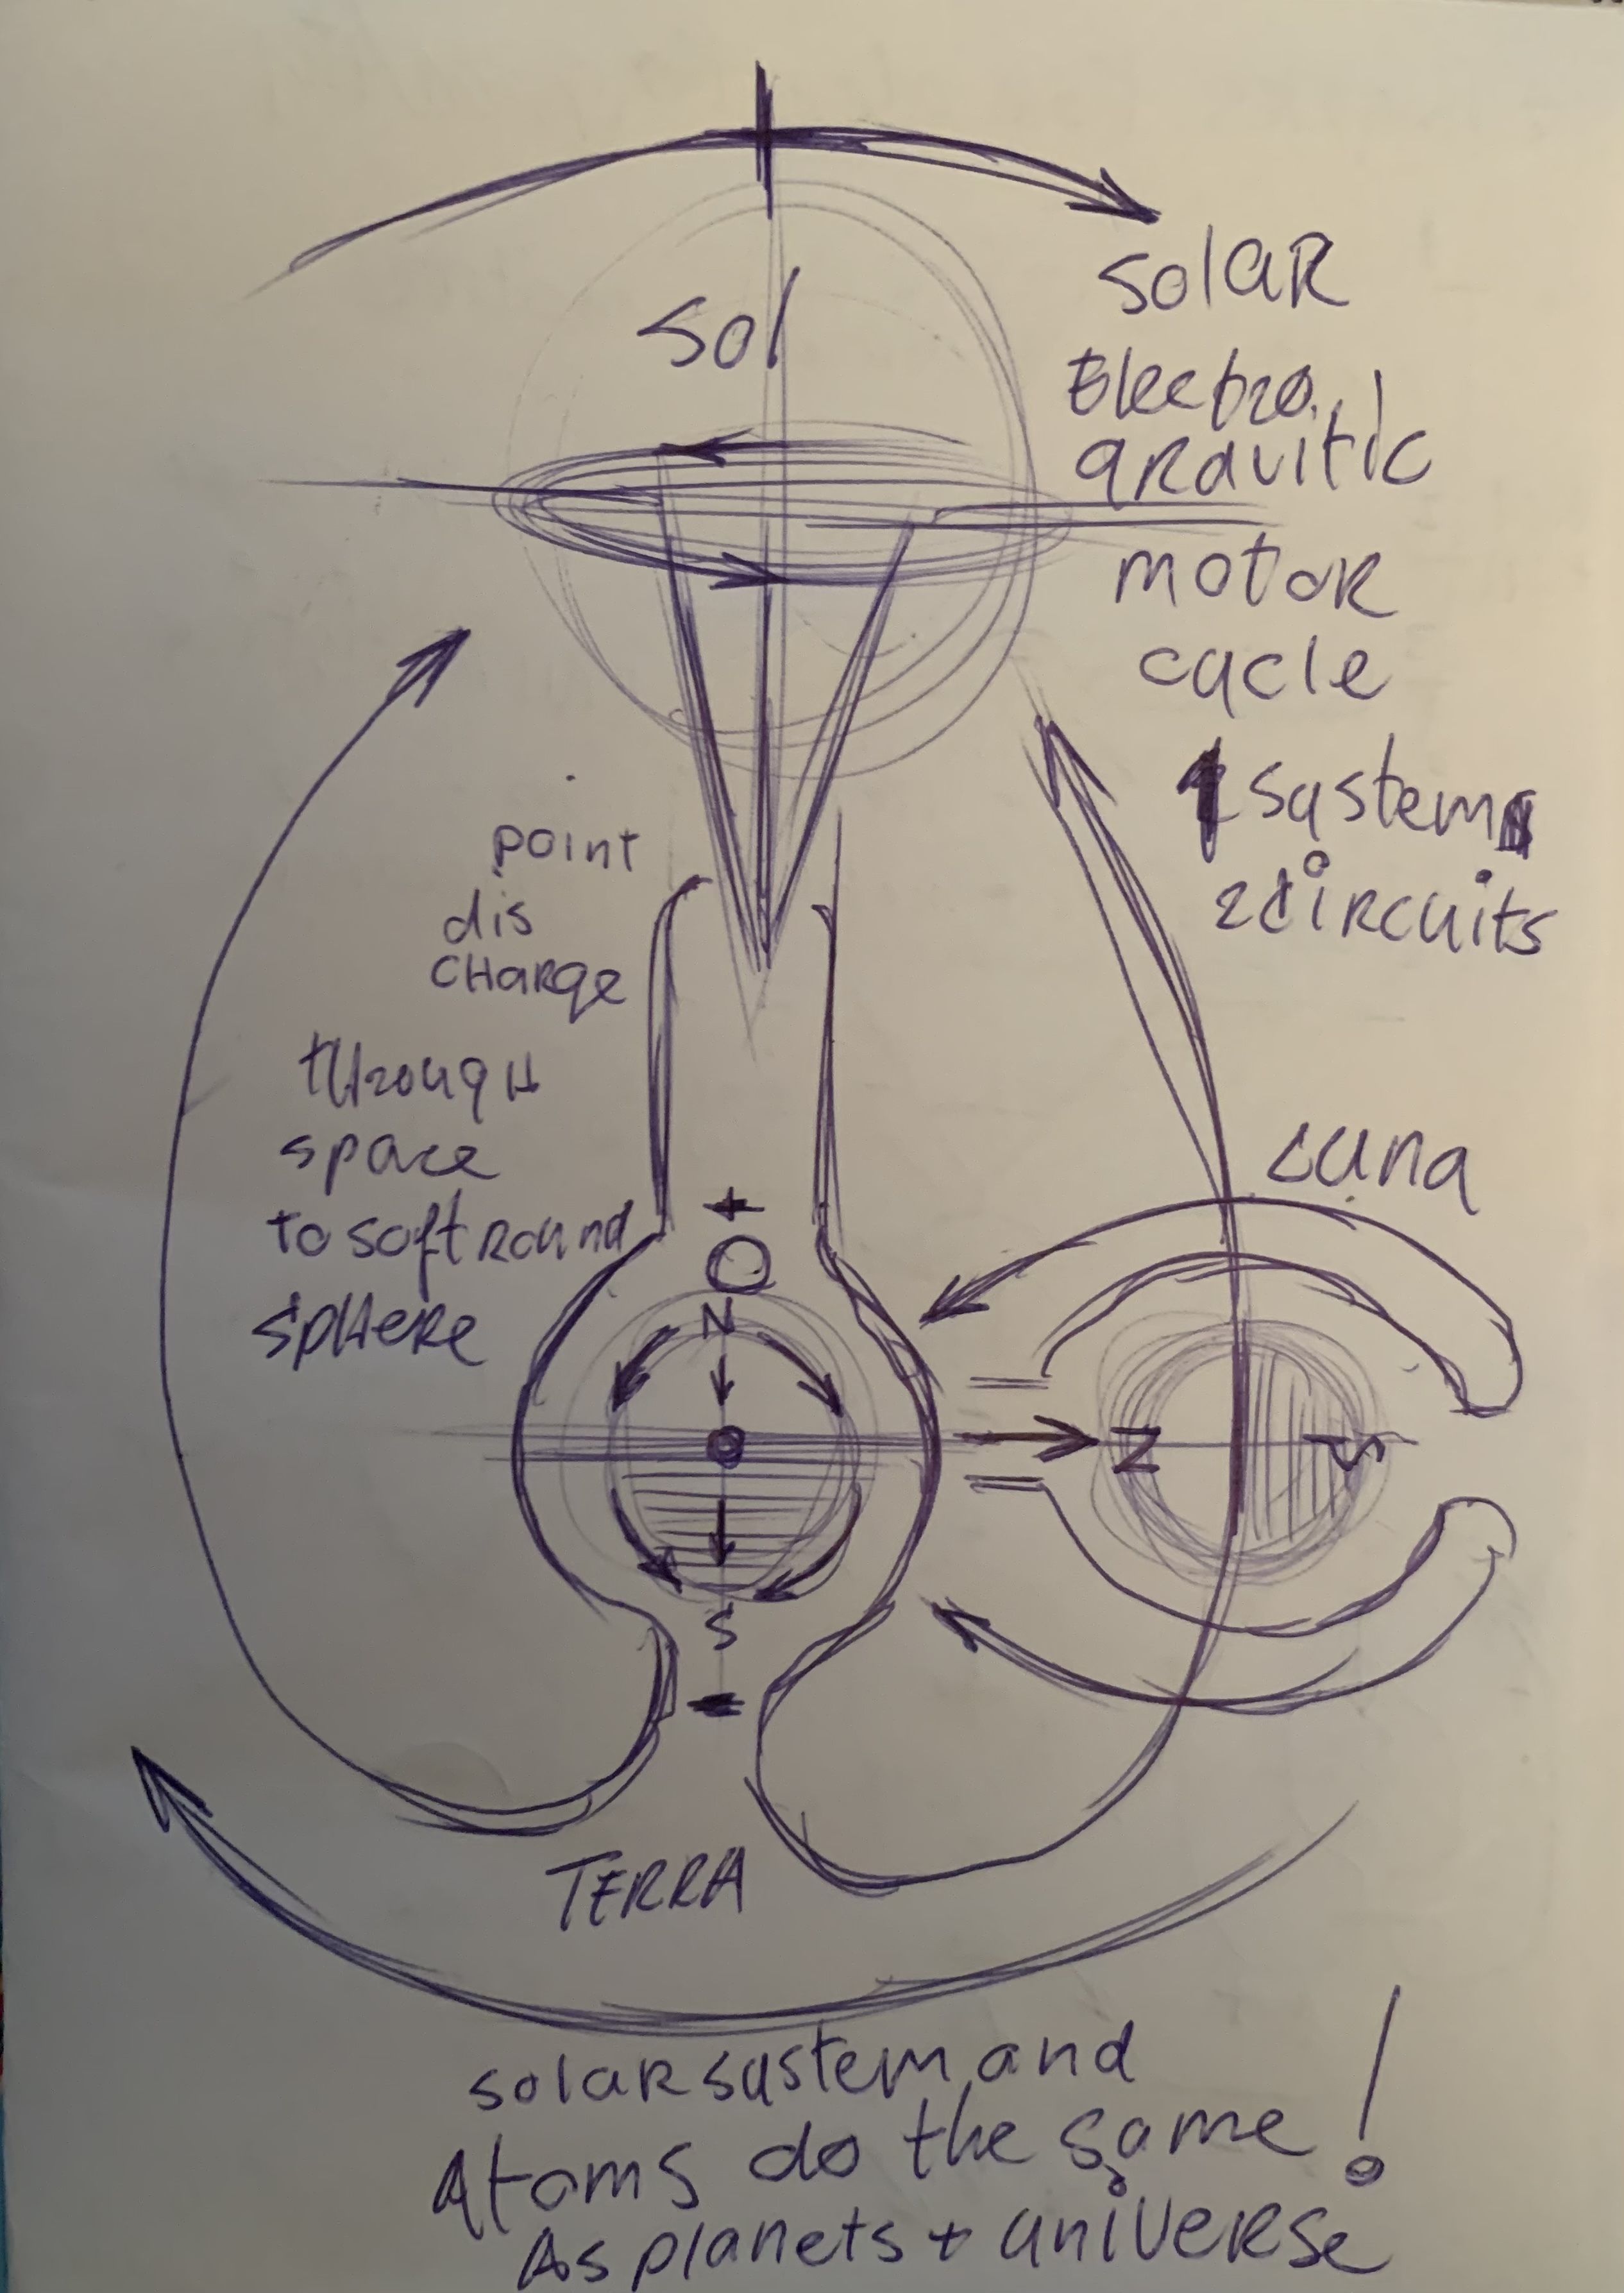 Sol
SOLAR
Electro
gravitic
motor
cycle
1 system
2 circuits
point
dis
CHARge
through
space
to soft round
sphere
Luna
+
N
N
S
S
-
TERRA
solar system and
Atoms do the same!
As planets + universe